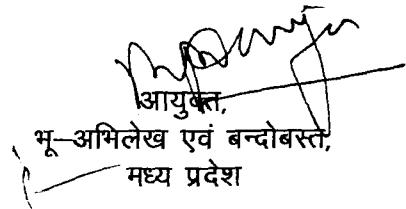 आयुक्त,
भू–अभिलेख एवं बन्दोबस्त,
मध्य प्रदेश